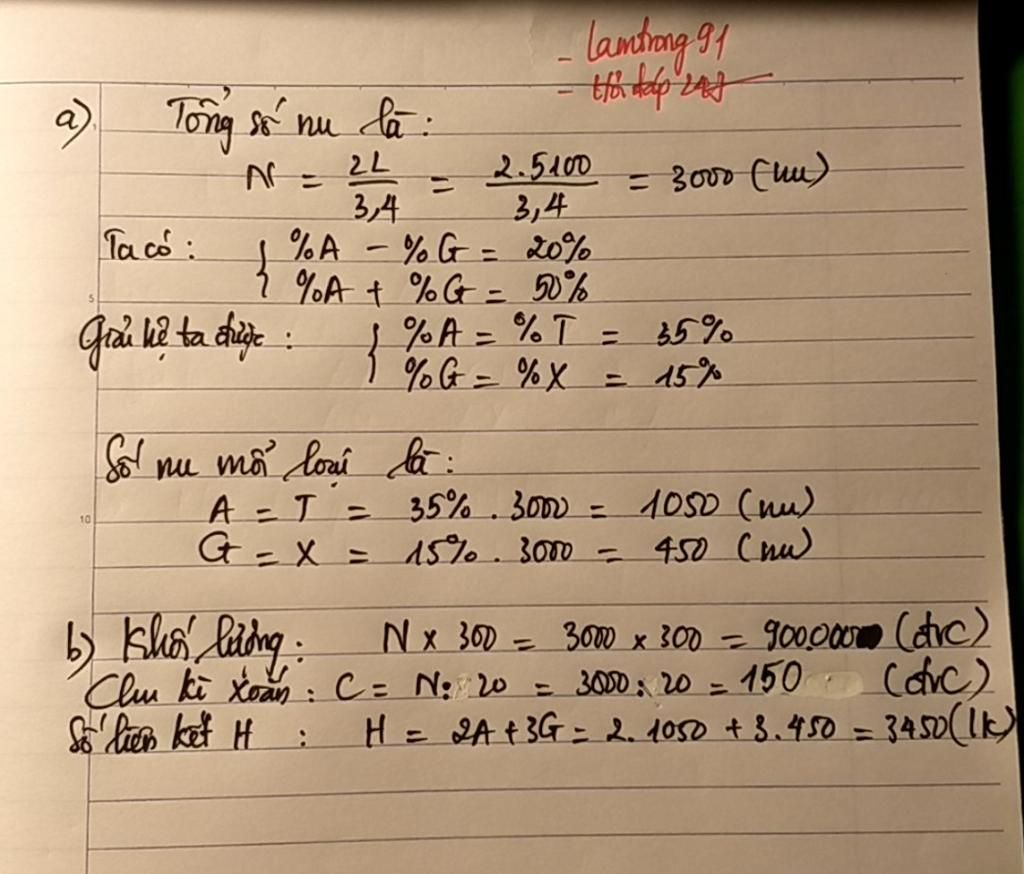 - lamtrong91
- Hỏi đáp 247
a) Tổng số nu là:
N = 2L/3,4 = 2.5100/3,4 = 3000 (nu)
Ta có: { %A - %G = 20%
%A + %G = 50%
Giải hệ ta được: { %A = %T = 35%
%G = %X = 15%
5
Số nu mỗi loại là:
A = T = 35% . 3000 = 1050 (nu)
10
G = X = 15% . 3000 = 450 (nu)
b) Khối lượng: N x 300 = 3000 x 300 = 900.000 (đvC)
Chu kì xoắn: C = N: 20 = 3000: 20 = 150 (đvC)
Số liên kết H : H = 2A + 3G = 2. 1050 + 3. 450 = 3450 (lk)